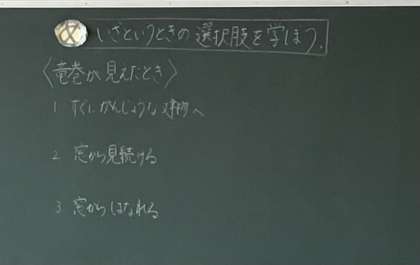 め いざというときの選択肢を学ぼう.
〈竜巻が見えたとき〉
1 すぐにがんじょうな建物へ
2 窓から見続ける
3 窓からはなれる